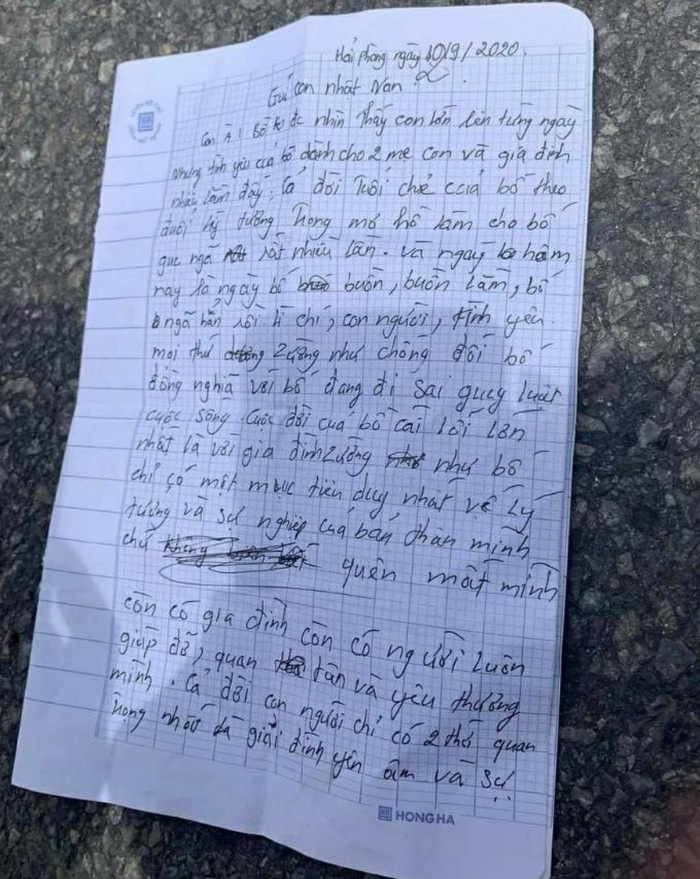 Hải phòng ngày 10/9/2020.
Gửi con nhật Nan
Con À! Bố ko đc nhìn thấy con lớn lên từng ngày
Nhưng tình yêu của bố dành cho 2 mẹ con và gia đình
nhiều lắm đấy. Cả đời Tuổi chẻ của bố theo
đuổi lý tưởng Trong mơ hồ làm cho bố
gục ngã rất nhiều lần. và ngay hôm
nay là ngày bố buồn, buồn lắm, bố
ngã hẳn rồi lí chí, con người, tình yêu.
mọi thứ Zường như chống đối bố
đồng nghĩa với bố đang đi sai quy luật
cuộc sống. Cuộc đời của bố cái lỗi lớn
nhất là với gia đình Zường như bố
chỉ có một mục tiêu duy nhất về lý
tưởng và sự nghiệp của bản thân mình
chứ quên mất mình
còn có gia đình còn có người luôn
giúp đỡ, quan tân và yêu thương
mình. Cả đời con người chỉ có 2 thứ quan
trong nhất là giải đình yên ấm và sự
HONG HA